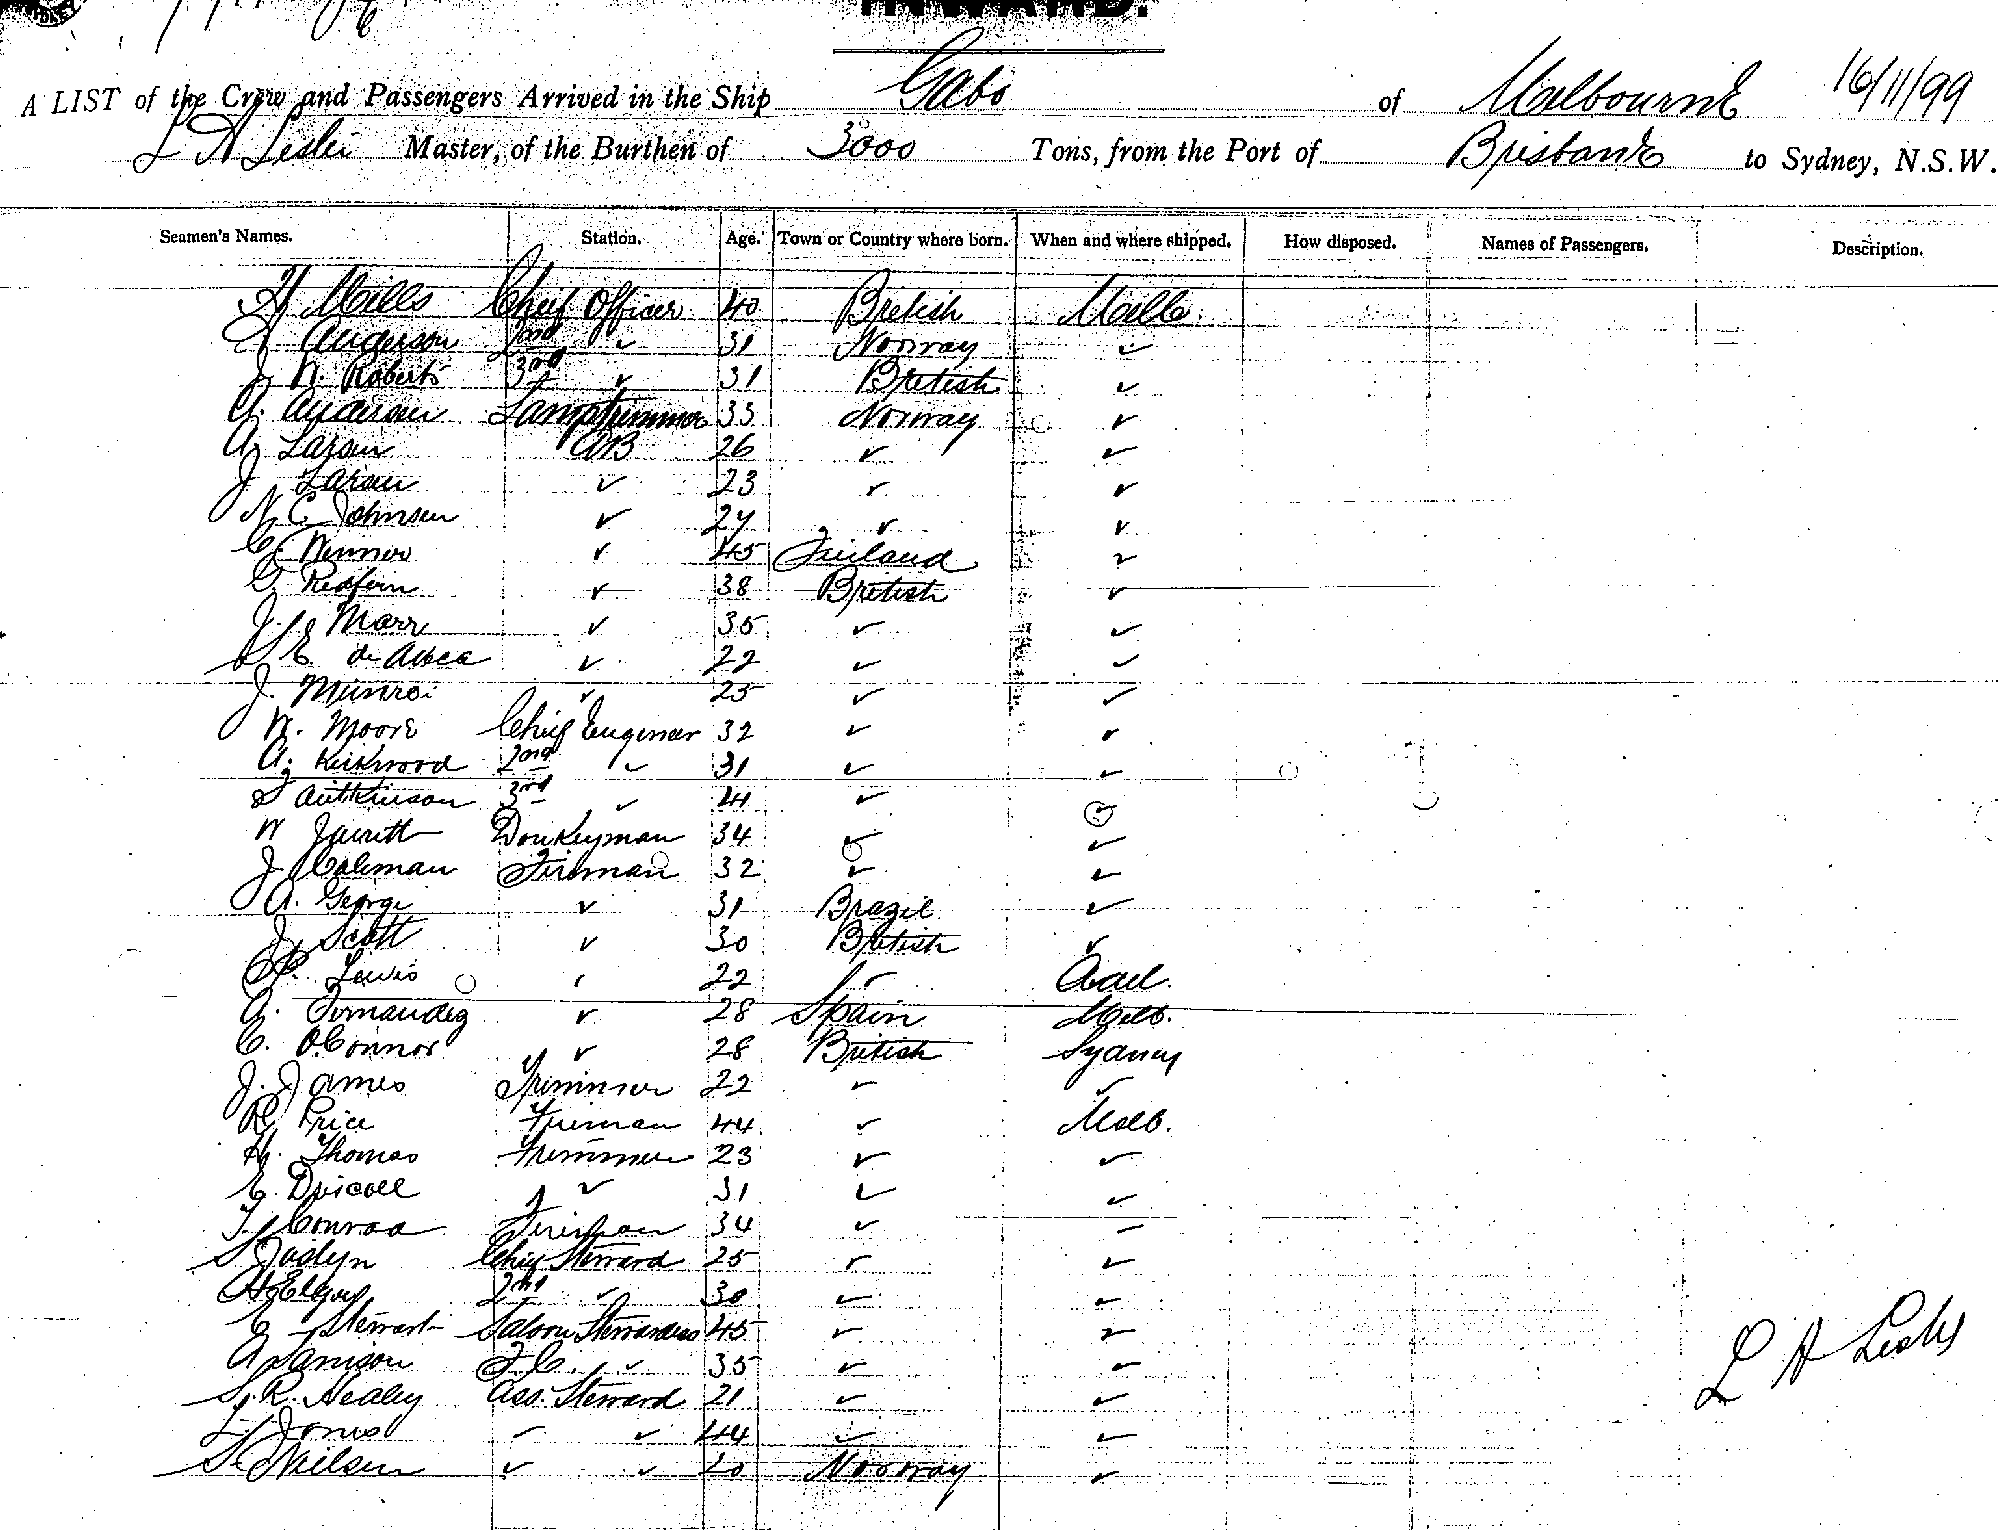 INWARD.
A LIST of the Crew and Passengers Arrived in the Ship Gabo of Melbourne 16/11/99
L A Leslie Master, of the Burthen of 3000 Tons, from the Port of Brisbane to Sydney, N.S.W.
Seamen's Names. Station. Age. Town or Country where born. When and where shipped. How disposed. Names of Passengers. Description.
H Mills Chief Officer 40 British Melb.
Anderson 2nd ✓ 31 Norway ✓
J W. Roberts 3rd ✓ 31 British ✓
A. Anderson Lamptrimmer 33 Norway ✓
A. AB 26 ✓ ✓
J ✓ 23 ✓ ✓
N C Johnsen ✓ 24 ✓ ✓
C ✓ 45 Finland ✓
G Redfern ✓ 38 British ✓
J. Marr ✓ 35 ✓ ✓
E de ✓ 22 ✓ ✓
J. Munroe ✓ 25 ✓ ✓
W. Moore Chief Engineer 32 ✓ ✓
A. Kirkwood 2nd ✓ 31 ✓ ✓
3rd ✓ 41 ✓ ✓
W Jarrett Donkeyman 34 ✓ ✓
J Coleman Fireman 32 ✓ ✓
A. George ✓ 31 Brazil ✓
J. Scott ✓ 30 British ✓
P. Lewis ✓ 22 ✓ Adel.
A. Fernandez ✓ 28 Spain Melb.
C. O'Connor ✓ 28 British Sydney
J. James Trimmer 22 ✓ ✓
R. Price Fireman 44 ✓ Melb.
H. Thomas Trimmer 23 ✓ ✓
E. Driscoll ✓ 31 ✓ ✓
T. Conrad Fireman 34 ✓ ✓
S. Joslyn Chief Steward 25 ✓ ✓
2nd ✓ 30 ✓ ✓
E Stewart Saloon Stewardess 45 ✓ ✓
A Jamison F.C. ✓ 35 ✓ ✓
S. R. Sealey Ass. Steward 21 ✓ ✓
L. Jones ✓ ✓ 44 ✓ ✓
S. Neilsen ✓ ✓ 20 Norway ✓
L A Leslie